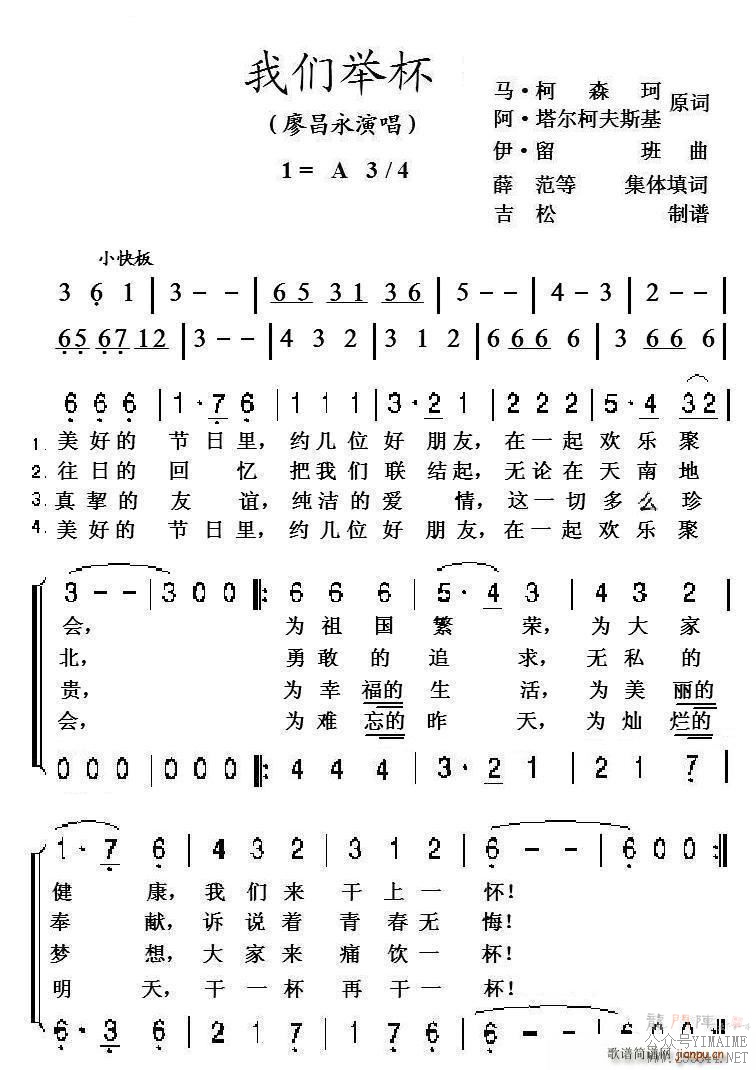 我们举杯
（廖昌永演唱）
1= A 3/4
马·柯 森 珂
阿·塔尔柯夫斯基 原词
伊·留 班 曲
薛 范等 集体填词
吉 松 制谱
小快板
3 6 1 | 3 - - | 65 31 36 | 5 - - | 4 - 3 | 2 - - |
65 67 12 | 3 - - | 4 3 2 | 3 1 2 | 6 66 6 | 3 66 6 |
6 6 6 | 1 · 7 6 | 1 1 1 | 3 · 2 1 | 2 2 2 | 5 · 4 32 |
1. 美好的 节日里，约几位好朋友，在一起欢乐聚
2. 往日的 回忆 把我们联结起，无论在天南地
3. 真挚的 友谊，纯洁的爱情，这一切多么珍
4. 美好的 节日里，约几位好朋友，在一起欢乐聚
3 - - | 3 0 0 ‖: 6 6 6 | 5 · 4 3 | 4 3 2 |
会， 为祖国繁荣，为大家
北， 勇敢的追求，无私的
贵， 为幸福的生活，为美丽的
会， 为难忘的昨天，为灿烂的
0 0 0 | 0 0 0 ‖: 4 4 4 | 3 · 2 1 | 2 1 7 |
1 · 7 6 | 4 3 2 | 3 1 2 | 6 - - | 6 0 0 :‖
健康，我们来干上一怀！
奉献，诉说着青春无悔！
梦想，大家来痛饮一杯！
明天，干一杯再干一杯！
6 · 3 6 | 2 1 7 | 1 7 6 | 6
公众号YIMAIME
歌谱简谱网 jianpu.cn